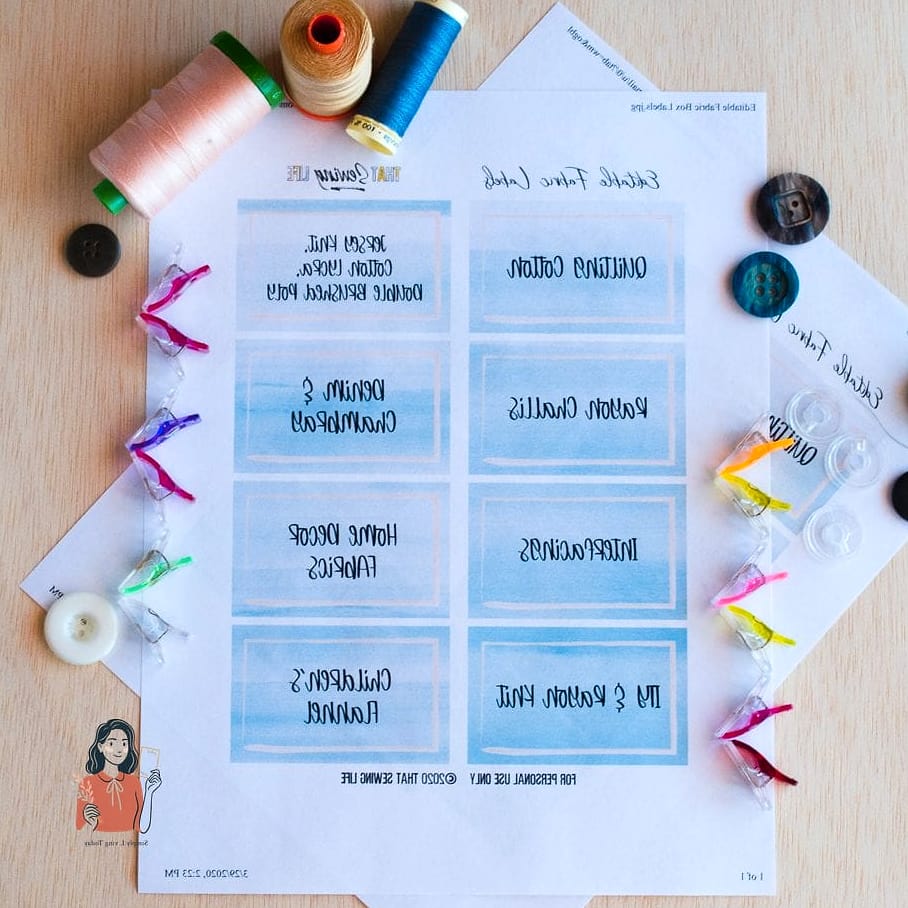 Editable Fabric Box Labels.jpg
Editable Fabric Labels
THAT Sewing LIFE
Quilting Cotton
Jersey Knit,
Cotton Lycra,
Double Brushed Poly
Rayon Challis
Denim &
Chambray
Interfacings
Home Decor
Fabrics
ITY & Rayon Knit
Children's
Flannel
FOR PERSONAL USE ONLY ©2020 THAT SEWING LIFE
1 of 1
3/29/2020, 2:23 PM
Editable Fabric
PM
100 %
Simply Living Today